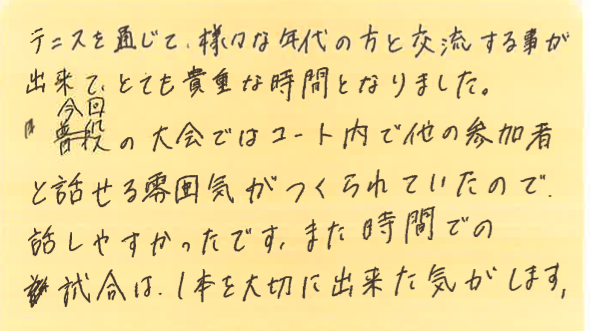 テニスを通じて、様々な年代の方と交流する事が
出来て、とても貴重な時間となりました。
今回
普段の大会ではコート内で他の参加者
と話せる雰囲気がつくられていたので、
話しやすかったです。また時間での
試合は、1本を大切に出来た気がします。